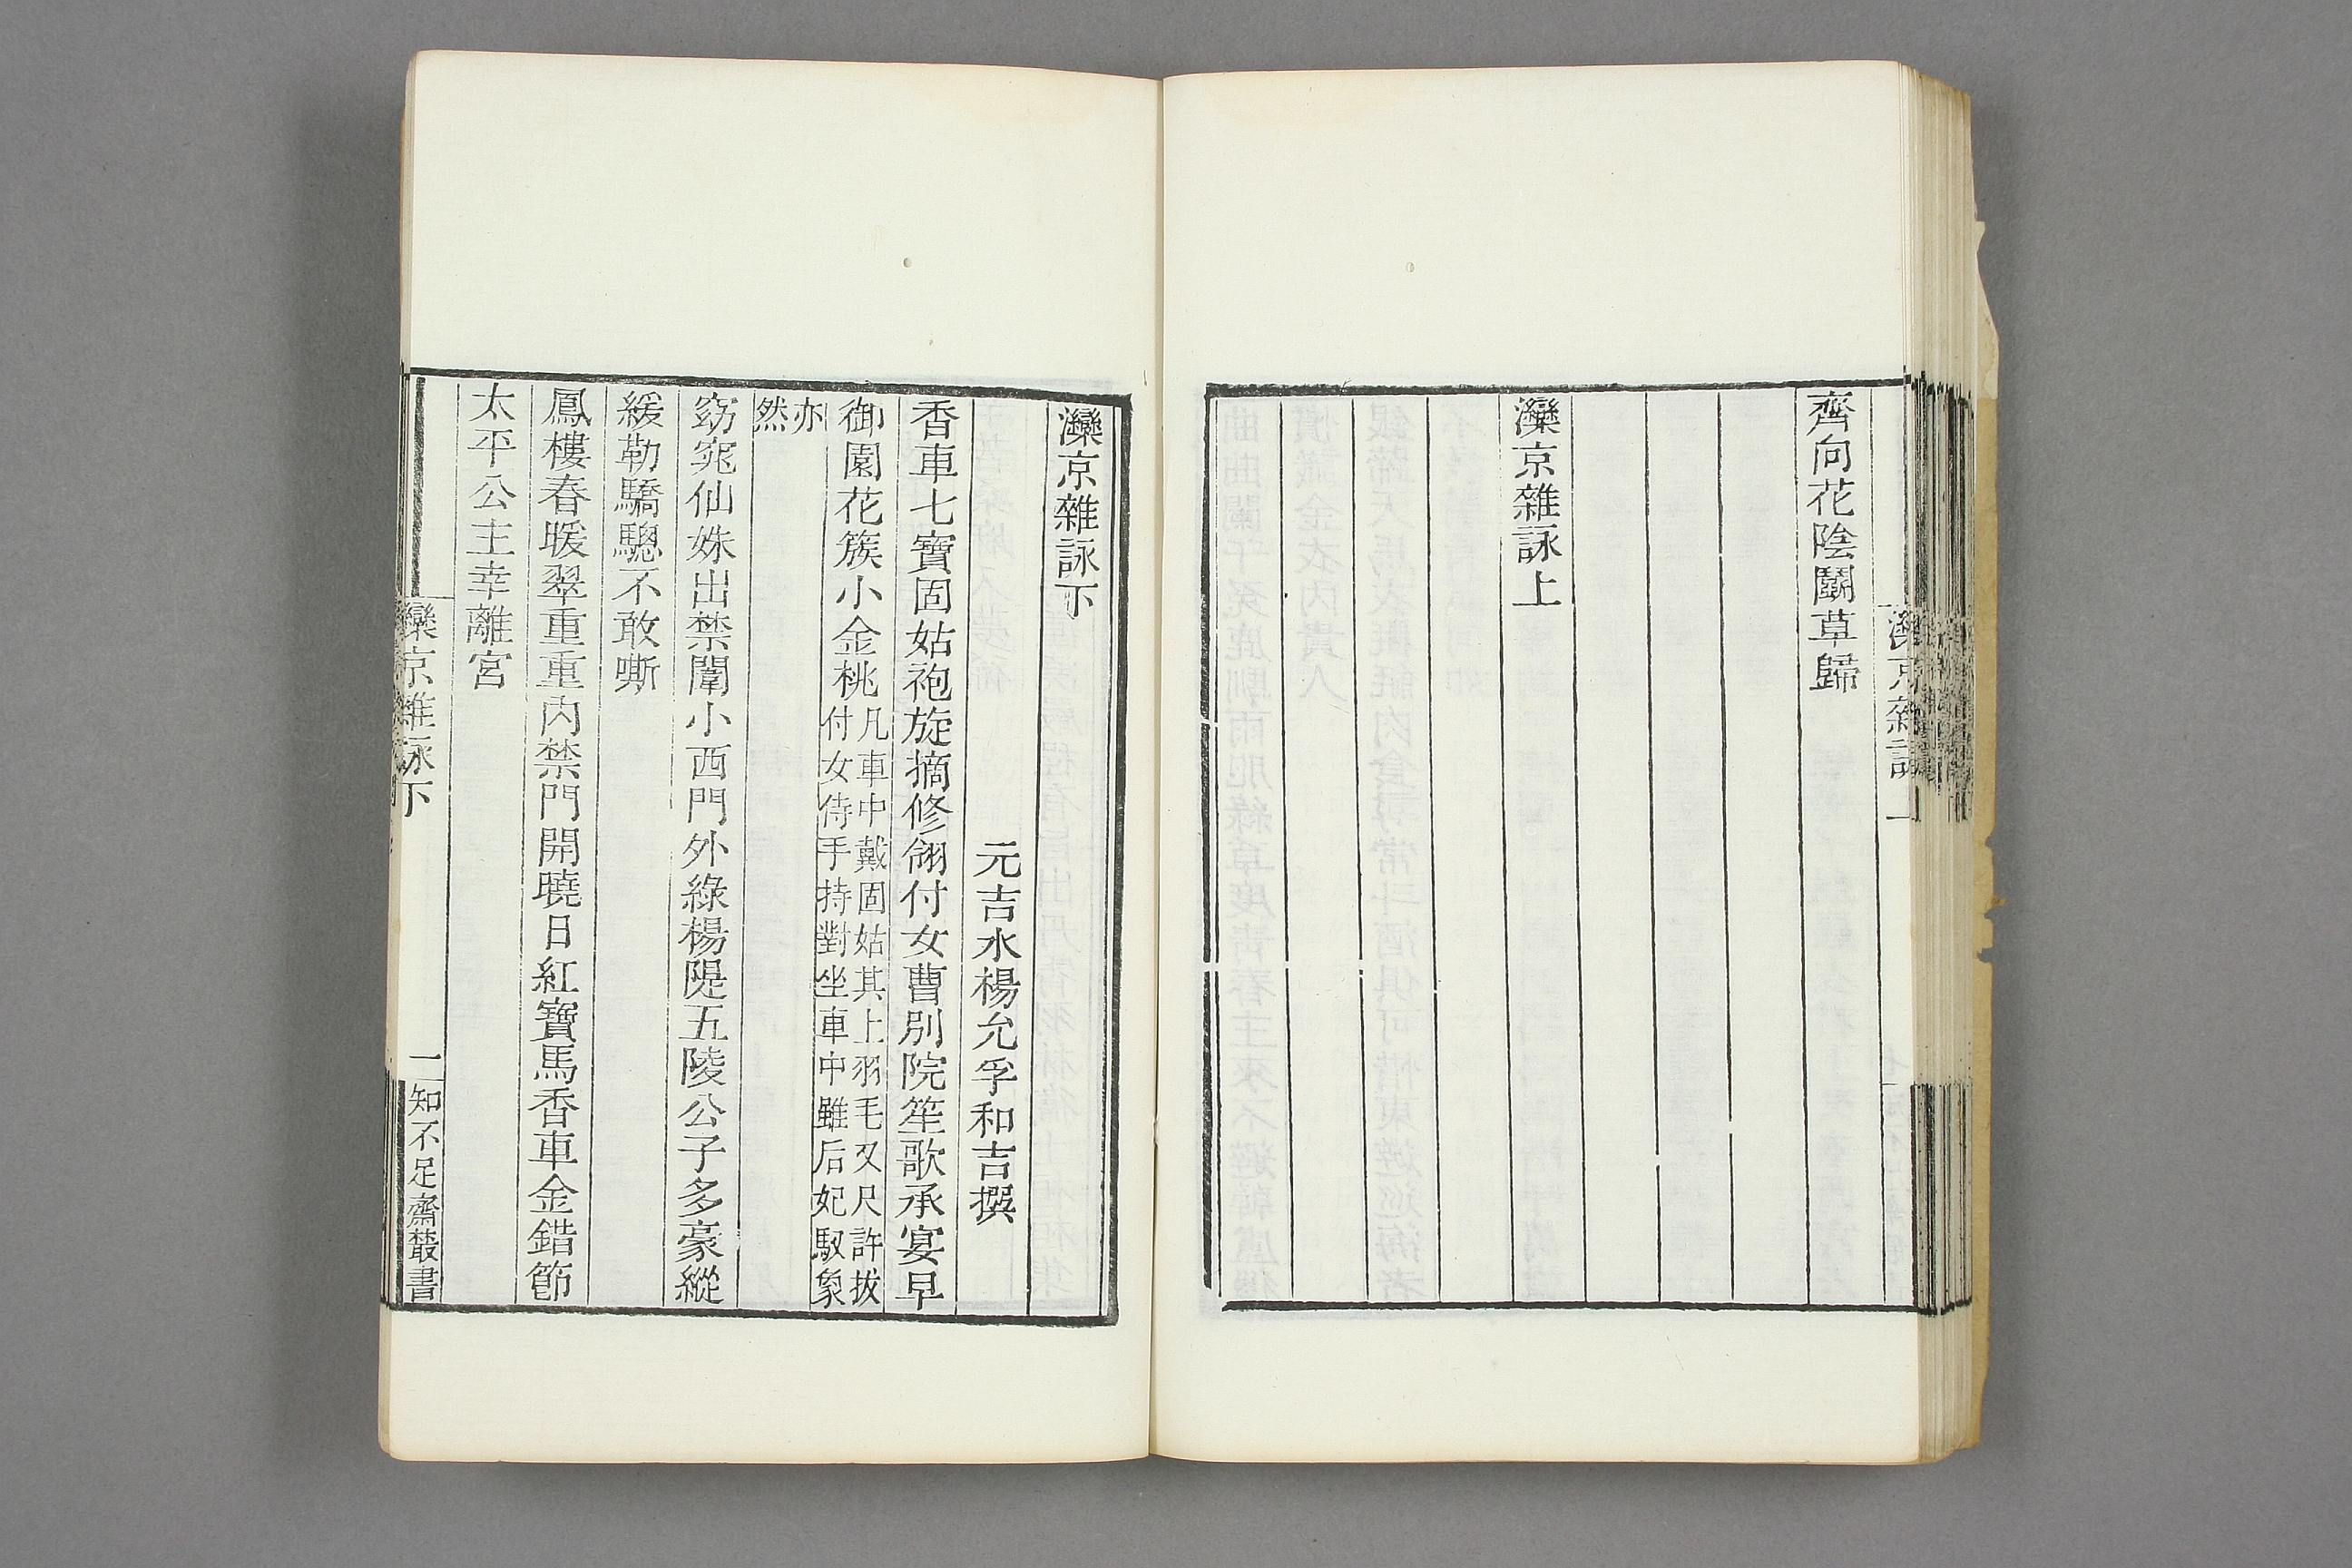 齊向花陰鬭草歸
灤京雜詠上
灤京雜詠下
元吉水楊允孚和吉撰
香車七寶固姑袍旋摘修翎付女曹別院笙歌承宴早
御園花簇小金桃凡車中戴固姑其上羽毛又尺許拔
付女侍手持對坐車中雖后妃馭象
亦
然
窈窕仙姝出禁闈小西門外綠楊隄五陵公子多豪縱
緩勒驕驄不敢嘶
鳳樓春暖翠重重內禁門開曉日紅寶馬香車金錯節
太平公主幸離宮
灤京雜詠下
一
知不足齋叢書